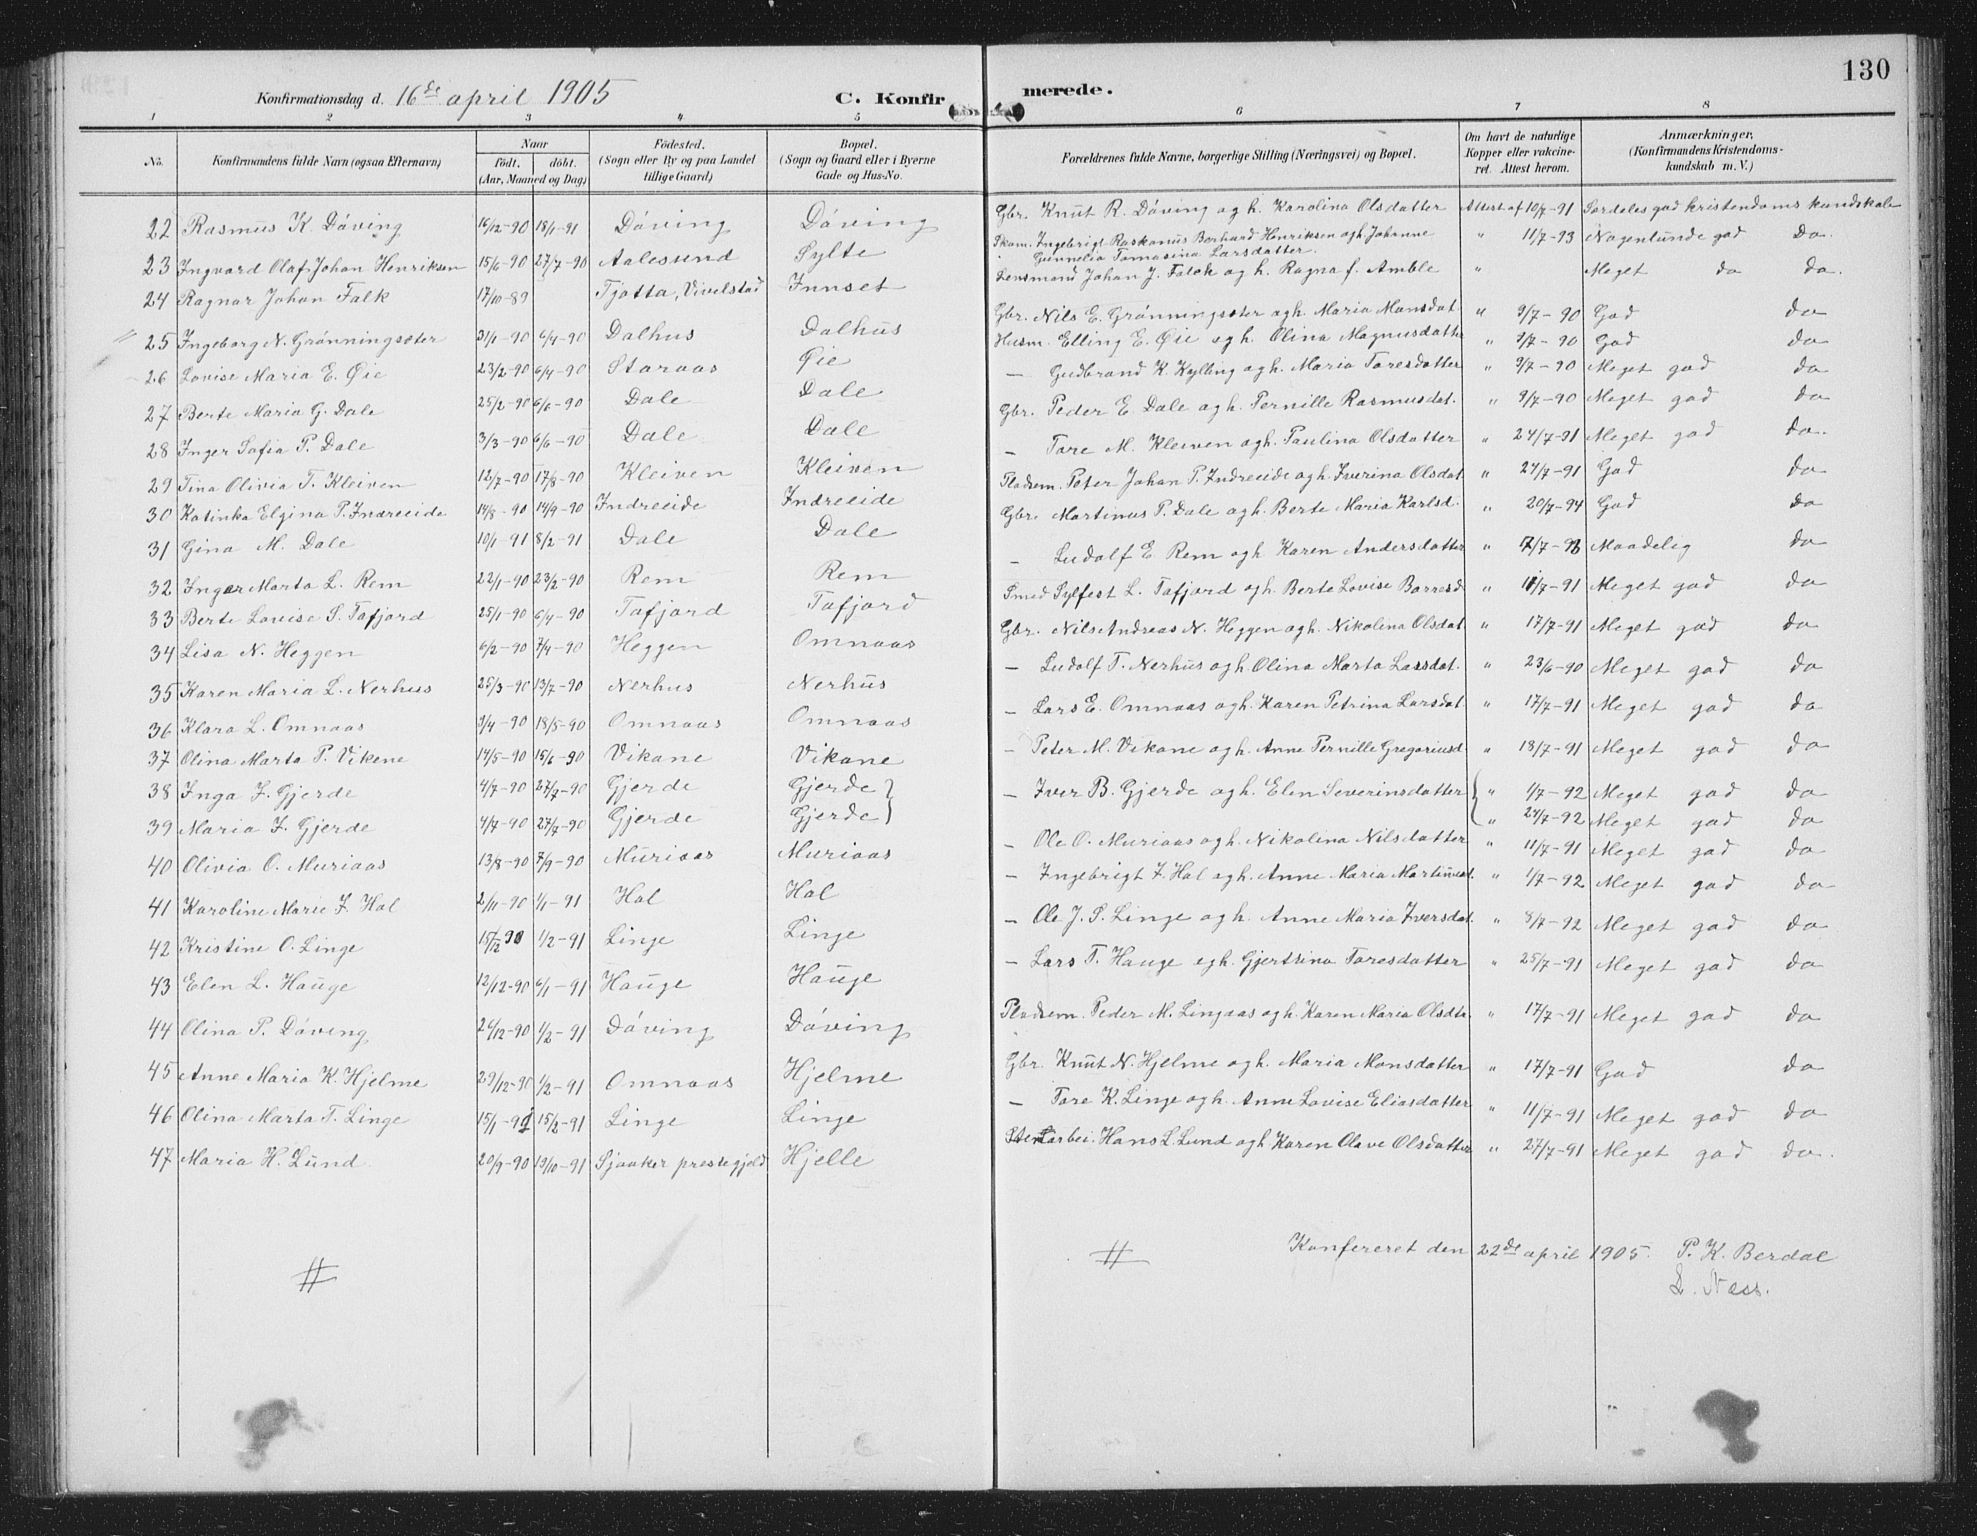 130
Konfirmationsdag d. 16de april 1905 C. Konfirmerede.
1 2 3 4 5 6 7 8
No. Konfirmandens fulde Navn (ogsaa Efternavn) Naar födt. döbt. (Aar, Maaned og Dag) Födested. (Sogn eller By og paa Landet tillige Gaard) Bopæl. (Sogn og Gaard eller i Byerne Gade og Hus-No. Forældrenes fulde Navne, borgerlige Stilling (Næringsvei) og Bopæl. Om havt de naturlige Kopper eller vakcineret. Attest herom. Anmærkninger. (Konfirmandens Kristendomskundskab m. V.)
22 Rasmus K. Döving 16/12-90 18/1-91 Döving Döving Gbr. Knut R. Döving og h. Karolina Olsdatter Attest af 10/7-91 Særdeles god kristendoms kundskab
23 Ingvard Olaf Johan Henriksen 15/6-90 27/7-90 Aalesund Sylte Skom. Ingebrigt Raskanus Berhard Henriksen og h. Johanne Gunnelia Tomasina Larsdatter " 11/7-93 Nogenlunde god Do.
24 Ragnar Johan Falk 17/10-89 Tjøtta, Vivelstad Innset Lensmand Johan J. Falck og h. Ragna f. Amble " Meget do do.
25 Ingeborg N. Grønningsæter 31/1-90 6/4-90 Dalhus Dalhus Gbr. Nils E. Grønningsæter og h. Maria Monsdat. " 9/7-90 God do
26 Lovise Maria E. Øie 23/2-90 6/4-90 Staraas Øie Husm. Elling E. Øie og h. Olina Magnusdatter " 9/7-90 God do
27 Berte Maria G. Dale 25/2-90 6/6-90 Dale Dale — Gudbrand K. Kylling og h. Maria Toresdatter " 9/7-90 Meget god do
28 Inger Sofia P. Dale 3/3-90 6/6-90 Dale Dale Gbr. Peder E. Dale og h. Pernille Rasmusdat. " 9/7-90 Meget god do
29 Tina Olivia T. Kleiven 12/7-90 17/8-90 Kleiven Kleiven — Tore M. Kleiven og h. Paulina Olsdatter " 24/7-91 Meget god do.
30 Katinka Elgina P. Indreeide 14/8-90 14/9-90 Indreeide Indreeide Pladsm. Peter Johan P. Indreeide og h. Iverina Olsdat. " 27/7-91 God do
31 Gina M. Dale 10/1-91 8/2-91 Dale Dale Gbr. Martinus P. Dale og h. Berte Maria Karlsd. " 20/7-94 God do
32 Inger Marta L. Rem 22/1-90 23/2-90 Rem Rem — Ludolf E. Rem og h. Karen Andersdatter " Maadelig do
33 Berte Lovise S. Tafjord 25/1-90 6/4-90 Tafjord Tafjord Smed Sylfest L. Tafjord og h. Berte Lovise Barresd. " 11/7-91 Meget god do
34 Lisa N. Heggen 6/2-90 7/4-90 Heggen Omnaas Gbr. Nils Andreas N. Heggen og h. Nikolina Olsdat. " 17/7-91 Meget god do
35 Karen Maria L. Nerhus 25/3-90 13/7-90 Nerhus Nerhus — Ludolf T. Nerhus og h. Olina Marta Lassdat. " 23/6-90 Meget god do
36 Klara L. Omnaas 3/4-90 18/5-90 Omnaas Omnaas — Lars E. Omnaas og h. Karen Petrina Larsdat. " 17/7-91 Meget god do
37 Olina Marta P. Vikene 14/5-90 15/6-90 Vikane Vikane — Peter M. Vikane og h. Anne Pernille Gregoriusd. " 18/7-91 Meget god do
38 Inga I. Gjerde 4/7-90 27/7-90 Gjerde Gjerde — Iver B. Gjerde og h. Elen Severinsdatter " 1/7-92 Meget god do
39 Maria I. Gjerde 4/7-90 27/7-90 Gjerde Gjerde " 24/7-92 Meget god do
40 Olivia O. Muriaas 13/8-90 7/9-90 Muriaas Muriaas — Ole O. Muriaas og h. Nikolina Nilsdatter " 11/7-91 Meget god do
41 Karoline Marie I. Hol 2/11-90 1/1-91 Hol Hol — Ingebrigt I. Hol og h. Anne Maria Martinusd. " 1/7-92 Meget god do
42 Kristine O. Linge 15/12 90 1/2-91 Linge Linge — Ole J. S. Linge og h. Anne Maria Iversdat. " 8/7-92 Meget god do
43 Elen L. Hauge 12/12-90 6/1-91 Hauge Hauge — Lars T. Hauge og h. Gjertsina Toresdatter " 25/7-91 Meget god do
44 Olina P. Döving 26/12-90 1/2-91 Döving Döving Pladsem. Peder M. Lingaas og h. Karen Maria Olsdtr. " 17/7-91 Meget god do
45 Anne Maria K. Hjelme 29/12-90 1/2-91 Omnaas Hjelme Gbr. Knut N. Hjelme og h. Maria Monsdatter " 17/7-91 God do
46 Olina Marta T. Linge 15/1-91 15/2-91 Linge Linge — Tore K. Linge og h. Anne Lovise Eliasdatter " 11/7-91 Meget god do
47 Maria H. Lund 20/9-90 19/10-91 Sjaaker prestegjeld Hjelle Stenarbei. Hans L. Lund og h. Karen Olave Olsdatter " 27/7-91 Meget god do.
Konfereret den 22de april 1905. P. K. Berdal
L. Næss.